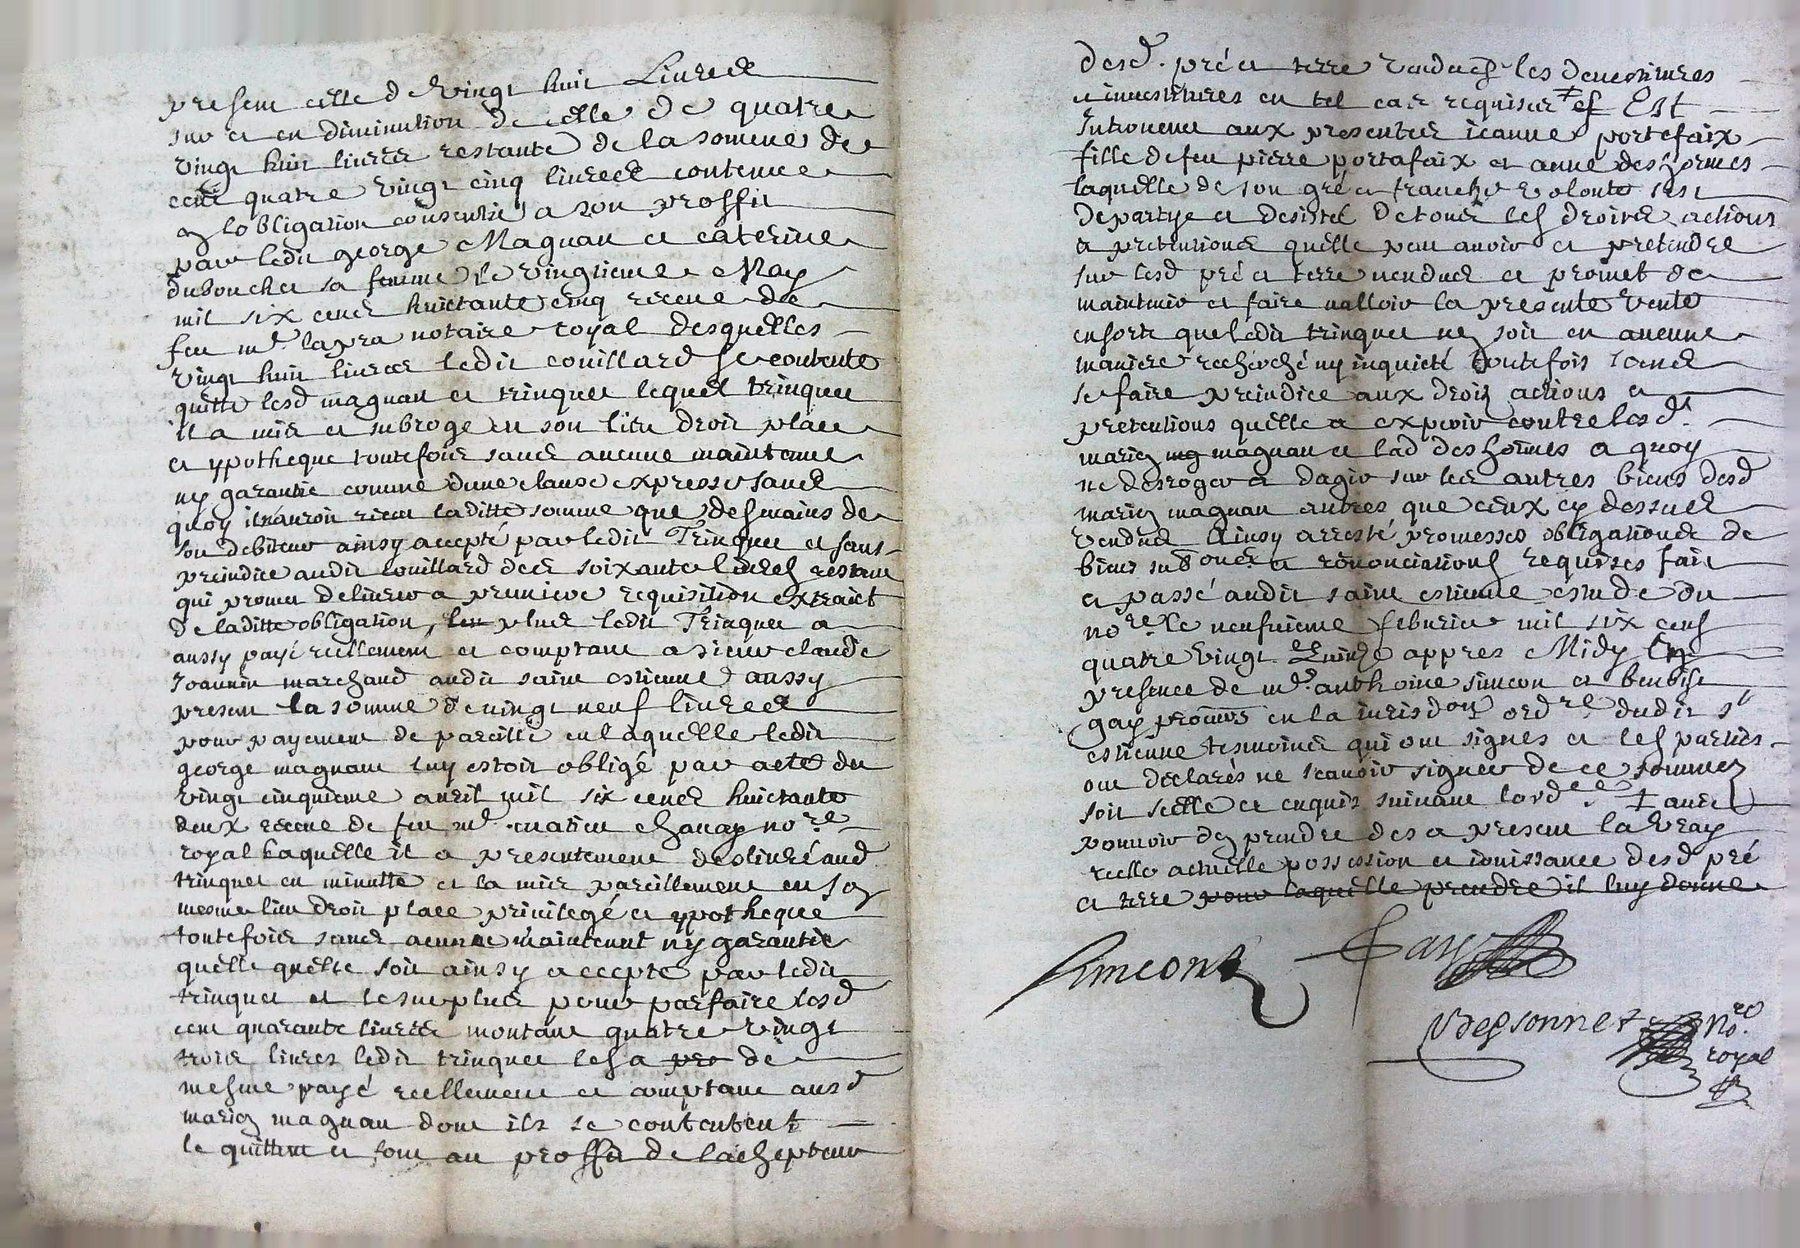 present celle de vingt huit Livres
sur et en diminution de celle de quatre
vingt huit livres restante de la somme de
cent quatre vingt cinq livres contenue
en lobligation consentie a son proffit
par ledit george Magnan et caterine
duboucher sa femme le vingtieme May
mil six cents huictante cinq receue de
feu me lapra notaire royal desquelles
vingt huit livres ledit couillard se contente
quitte lesd magnan et trinquet lequel trinquet
il a mis et subrogé en son lieu droit place
et ypotheque toutefois sans aucune maintenue
ny garantie comme dune clause expresse sans
quoy il nauroit receu laditte somme que des mains de
son debiteur ainsy accepté par ledit Trinquet et sans
preiudice audit couillard des soixante livres restant
qui promet delivrer a premiere requisition extraict
de laditte obligation, plus ledit Trinquet a
aussy payé reellement et comptant a sieur claude
Joannin marchand audit saint estienne aussy
present la somme de vingt neuf livres
pour payement de pareille en laquelle ledit
george magnan luy estoit obligé par acte du
vingt cinquieme avril mil six cents huictante
deux receue de feu me matieu chanay nore
royal Laquelle il a presentement deslivré aud
trinquet en minutte et la mis pareillement en son
mesme lieu droit place privilegé et ypotheque
toutefois sans aucune maintenut ny garantie
quelle quelle soit ainsy accepté par ledit
trinquet et le surplus pour parfaire lesd
cent quarante livres montant quatre vingt
trois livres ledit trinquet les a pre de
mesme payé reellement et comptant ausd
mariez magnan dont ils se contentent
le quittent et sont au proffit de lachepteur
desd. pré et terre vendues les devestitures
et investitures en tel cas requises ‡ et Est
Intrevenue aux presentes ieanne portefaix
fille de feu pierre portafaix et anne deshormes
laquelle de son gré et franche volonté sest
departye et desistee de tous les droits actions
et pretentions quelle peut avoir et pretendre
sur lesd pré et terre vendues et promet de
maintenir et faire valloir la presente vente
en sorte que ledit trinquet ne soit en aucune
maniere recherché ny inquieté toutefois sans
se faire preiudice aux droits actions et
pretentions quelle a expercir contre lesd.
mariez mg magnan et lad deshormes a quoy
ne desroger a dagir sur les autres biens desd
mariez magnan autres que ceux cy dessus
vendus Ainsy arresté promesses obligations de
biens submons et renonciations requises fait
et passé audit saint estienne estude du
nore le neufvieme febvrier mil six cens
quatre vingt quinze appres Midy En
presence de me anthoine simeon et benoist
gay procurs en la iurisdon ordre dudit st
estienne tesmoins qui ont signés et les parties
ont declarés ne scavoir signer de ce sommez
soit scellé et enquis suivant lordce ‡ avec
pouvoir den prendre des a present la vray
reelle actuelle possession et iouissance desd pré
et terre pour laquelle prendre il luy donne
Simeon
Gay
Desonnet nore
royal